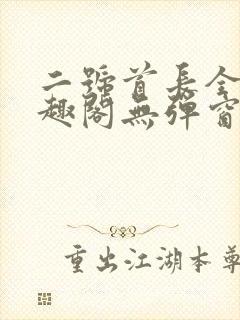 二號首長全
趣閣無彈窗
重出江湖本尊